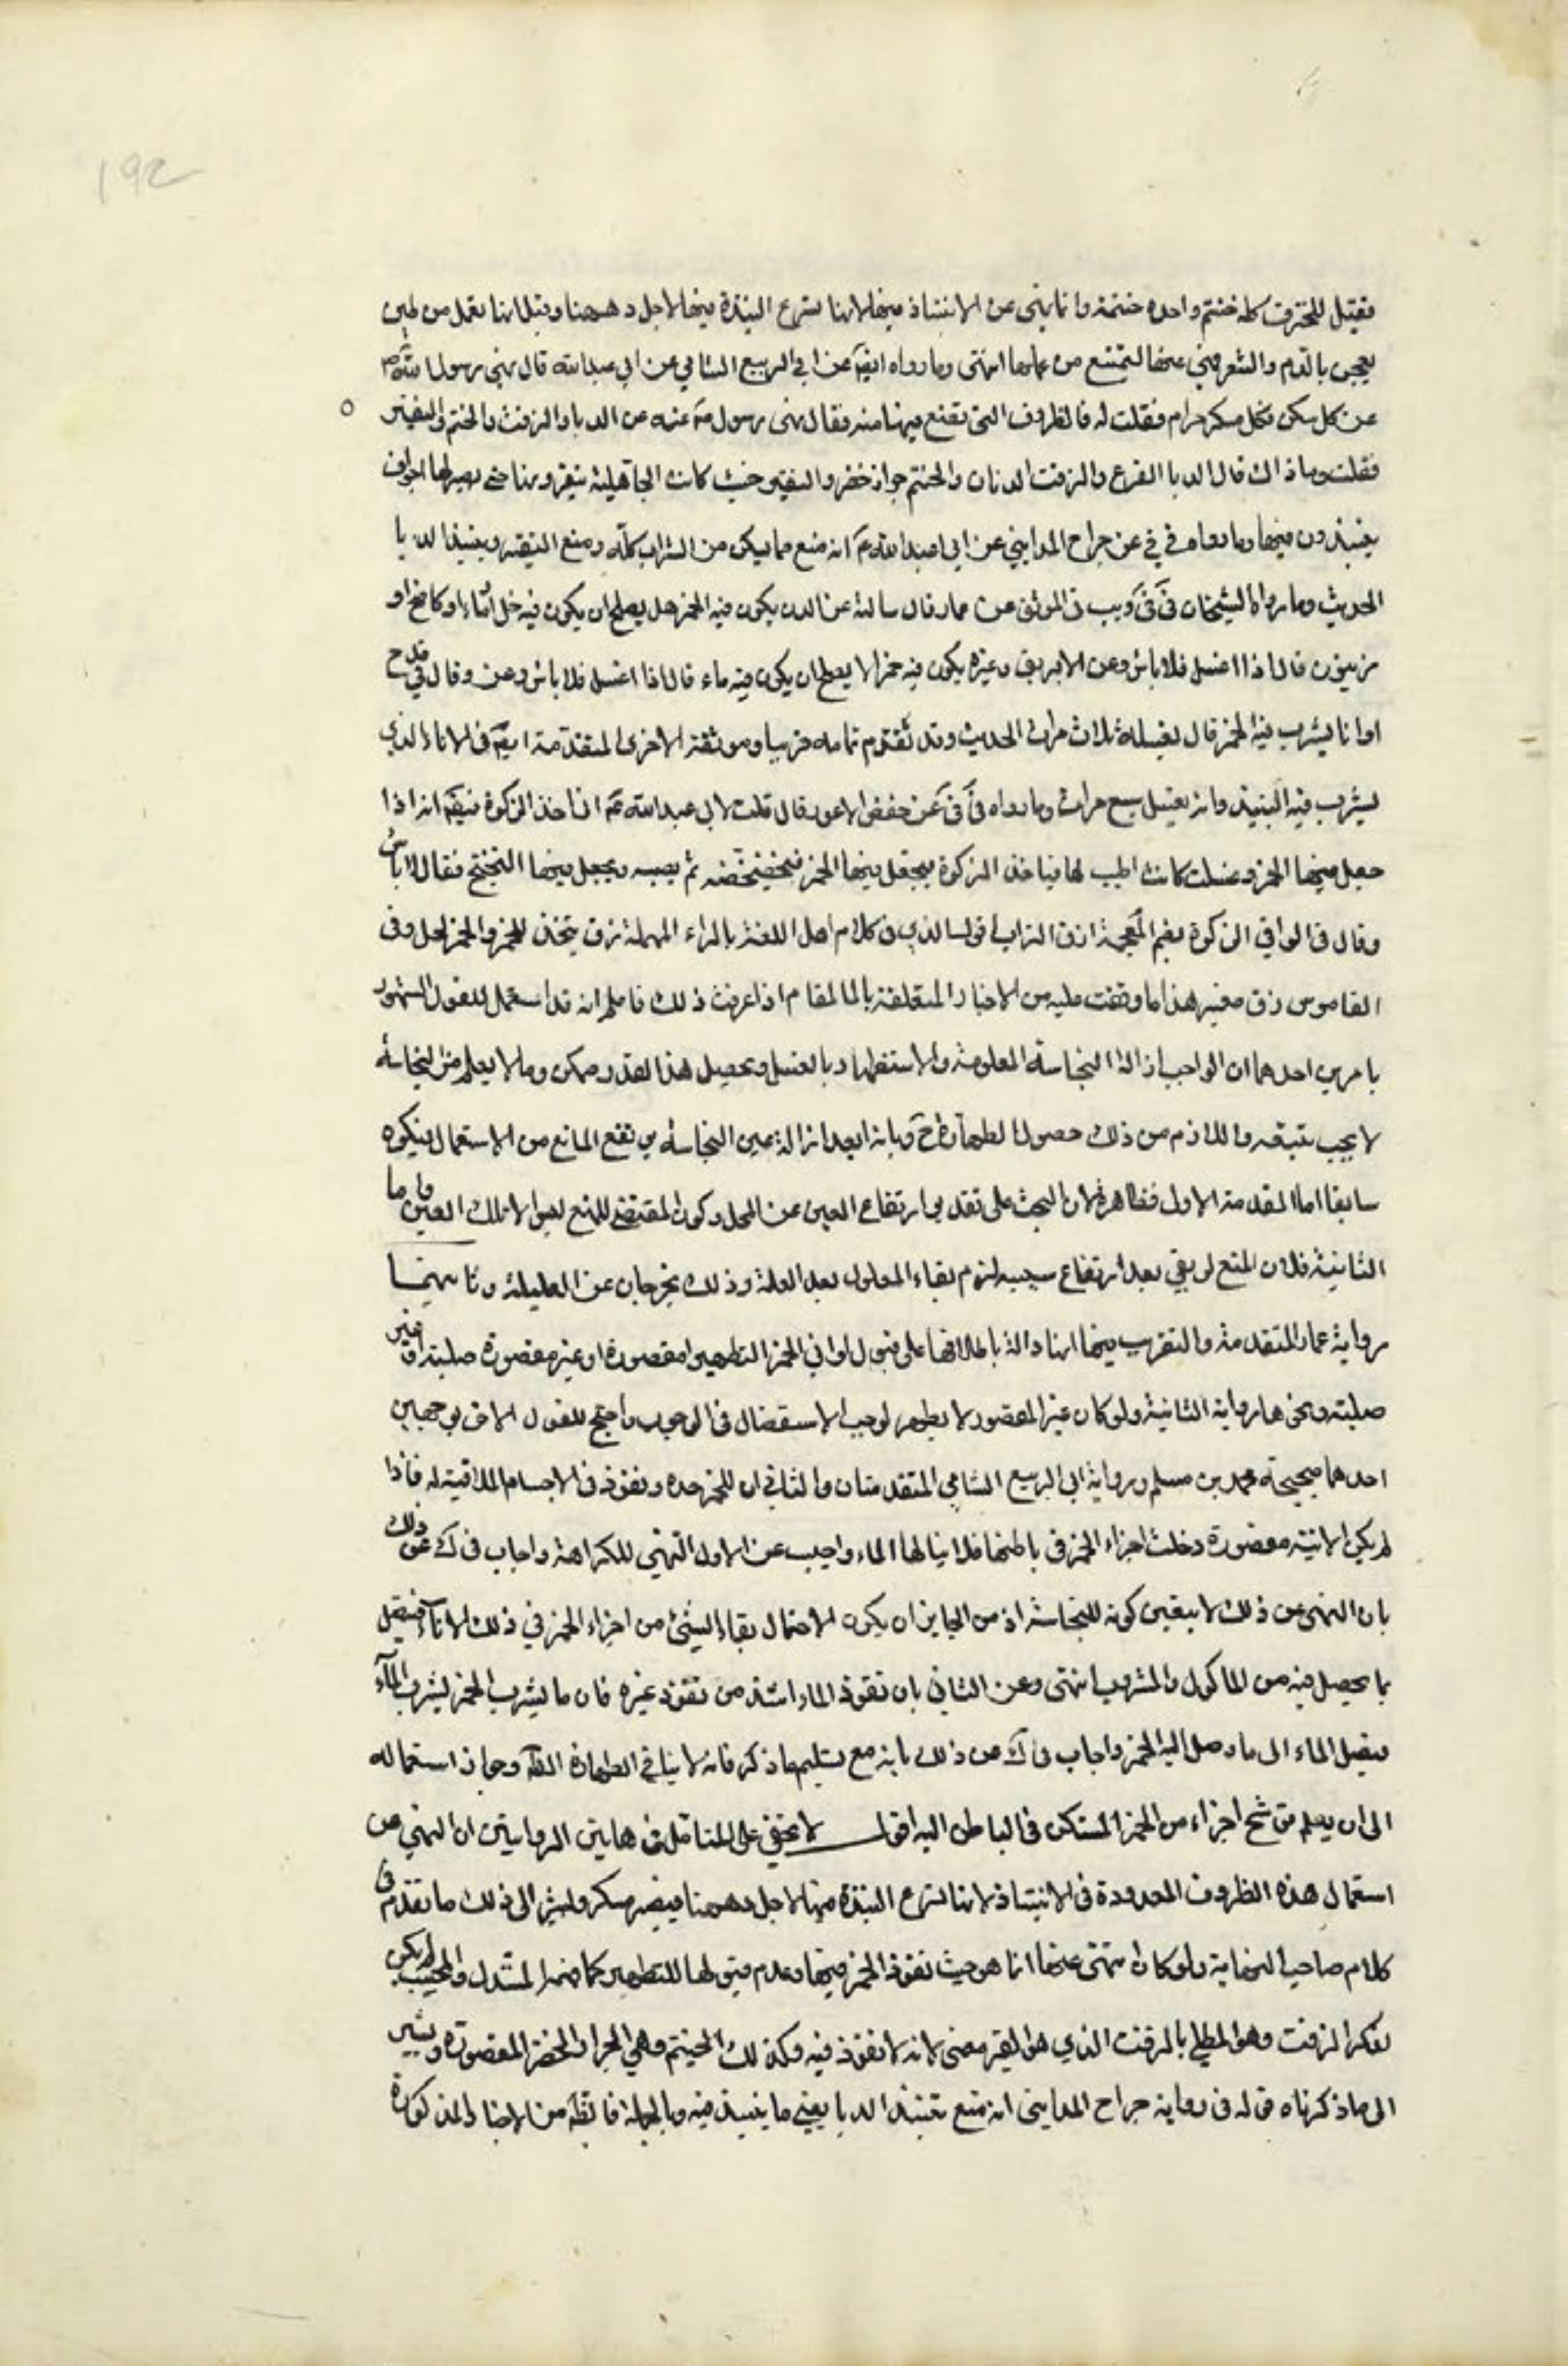 192
فقيل للخزف كله حنتم واحده حنتمة وانما نهى عن الانتباذ فيها لانها تسرع الشدة فيها لاجل دهنها وقيل لانها تعمل من طين
يعجن بالدم والشعر فنهى عنها لتمتنع من عملها انتهى وما رواه ايضا عن ابي الربيع الشامي عن ابي عبد الله قال نهى رسول الله ص
عن كل مسكر فكل مسكر حرام فقلت له فالظروف التي تصنع فيها منه فقال نهى رسول الله عنه عن الدبا والمزفت والحنتم والنقير
فقلت وما ذاك قال الدبا القرع والمزفت الدنان والحنتم جرار خضر والنقير خشب كانت الجاهلية ينقرونها حتى يصير لها اجواف
ينبذون فيها وما رواه في في عن جراح المدايني عن ابي عبد الله ع انه منع مما يسكر من الشراب كله ومنع النقير ونبيذ الدبا
الحديث وما رواه الشيخان في في ويب في الموثق عن عمار قال سالته عن الدن يكون فيه الخمر هل يصلح ان يكون فيه خل او ماء او كامخ او
زيتون قال اذا اغسل فلا باس وعن الابريق وغيره يكون فيه خمر ا يصلح ان يكون فيه ماء قال اذا اغسل فلا باس وعن وقال في قدح
او اناء يشرب فيه الخمر قال يغسله ثلاث مرات الحديث وقد تقدم تمامه قريبا وموثقته الاخرى المتقدمة ايضا في الاناء الذي
يشرب فيه النبيذ وانه يغسل سبع مرات وما رواه في في عن حفص الاعور قال قلت لابي عبد الله ع انا ناخذ الزكوة فيقال انه اذا
جعل فيها الخمر وغسلت كانت اطيب لها فناخذ الزكوة فيجعل فيها الخمر فنخضخضه ثم نصبه ونجعل فيها البختج فقال لا باس
وقال في الوافي الزكوة بضم المعجمة زق الشراب اقول الذي في كلام اهل اللغة بالراء المهملة زق يتخذ للخمر والخل وفي
القاموس زق صغير هذا ما وقفت عليه من الاخبار المتعلقة بالمقام اذا عرفت ذلك فاعلم انه قد استعمل للقول المشهور
بامرين احدهما ان الواجب ازالة النجاسة المعلومة والاستظهار بالغسل وتحصيل هذا القدر ممكن وما لا يعلم من النجاسة
لا يجب تتبعه واللازم من ذلك حصول الطهارة ح وبانه بعد ازالة عين النجاسة يرتفع المانع من الاستعمال فيكون
سابقا اما المقدمة الاولى فظاهرة لان البحث على تقدير ارتفاع العين عن المحل وكون المقتضي للمنع ليس الا تلك العين واما
الثانية فلان المنع لو بقي بعد ارتفاع سببه لزم بقاء المعلول بعد العلة وذلك يخرجان عن العلية وثانيهما
رواية عمار المتقدمة والتقريب فيها انها دالة باطلاقها على قبول اواني الخمر التطهير مغضورة او غير مغضورة صلبة او غير
صلبة ونحوها روايته الثانية ولو كان غير المغضور لا يطهر لوجب الاستفصال في الجواب واحتج للقول الاخر بوجهين
احدهما صحيحة محمد بن مسلم ورواية ابي الربيع الشامي المتقدمتان والثاني ان للخمر حدة ونفوذ في الاجسام الملاقية له فاذا
لم يكن الانية مغضورة دخلت اجزاء الخمر في باطنها فلا ينالها الماء واجيب عن الاول النهي للكراهة واجاب في ك عن ذلك
بان النهي عن ذلك لا يتعين كونه للنجاسة اذ من الجايز ان يكون لاحتمال بقاء شيء من اجزاء الخمر في ذلك الاناء فيتصل
بما يحصل فيه من الماكول والمشروب انتهى وعن الثاني بان نفوذ الماء اشد من نفوذ غيره فان ما يشرب الخمر يشرب الماء
فيصل الماء الى ما وصل اليه الخمر واجاب في ك عن ذلك بانه مع تسليم ما ذكر فانه لا ينافي الطهارة الظ وجواز استعماله
الى ان يعلم ترشح اجزاء من الخمر المستكن في الباطن اليه اقول لا يخفى على المتامل في هاتين الروايتين ان النهي عن
استعمال هذه الظروف المعدودة في الانتباذ لانها تسرع الشدة فيها لاجل دهنها فيصير مسكر ويشير الى ذلك ما تقدم في
كلام صاحب النهاية ولو كان النهي عنها انما هو حيث نفوذ الخمر فيها وعدم قبولها للتطهير كما فهمه المستدل والمجيب لم يكن
لذكر المزفت وهو المطلي بالزفت الذي هو القير معنى لانه لا نفوذ فيه وكذلك الحنتم وهي الجرار الخضر المغضورة ويشير
الى ما ذكرناه قوله في رواية جراح المدايني انه منع نبيذ الدبا يعني ما ينبذ فيه وبالجملة فالظ من الاخبار المذكورة